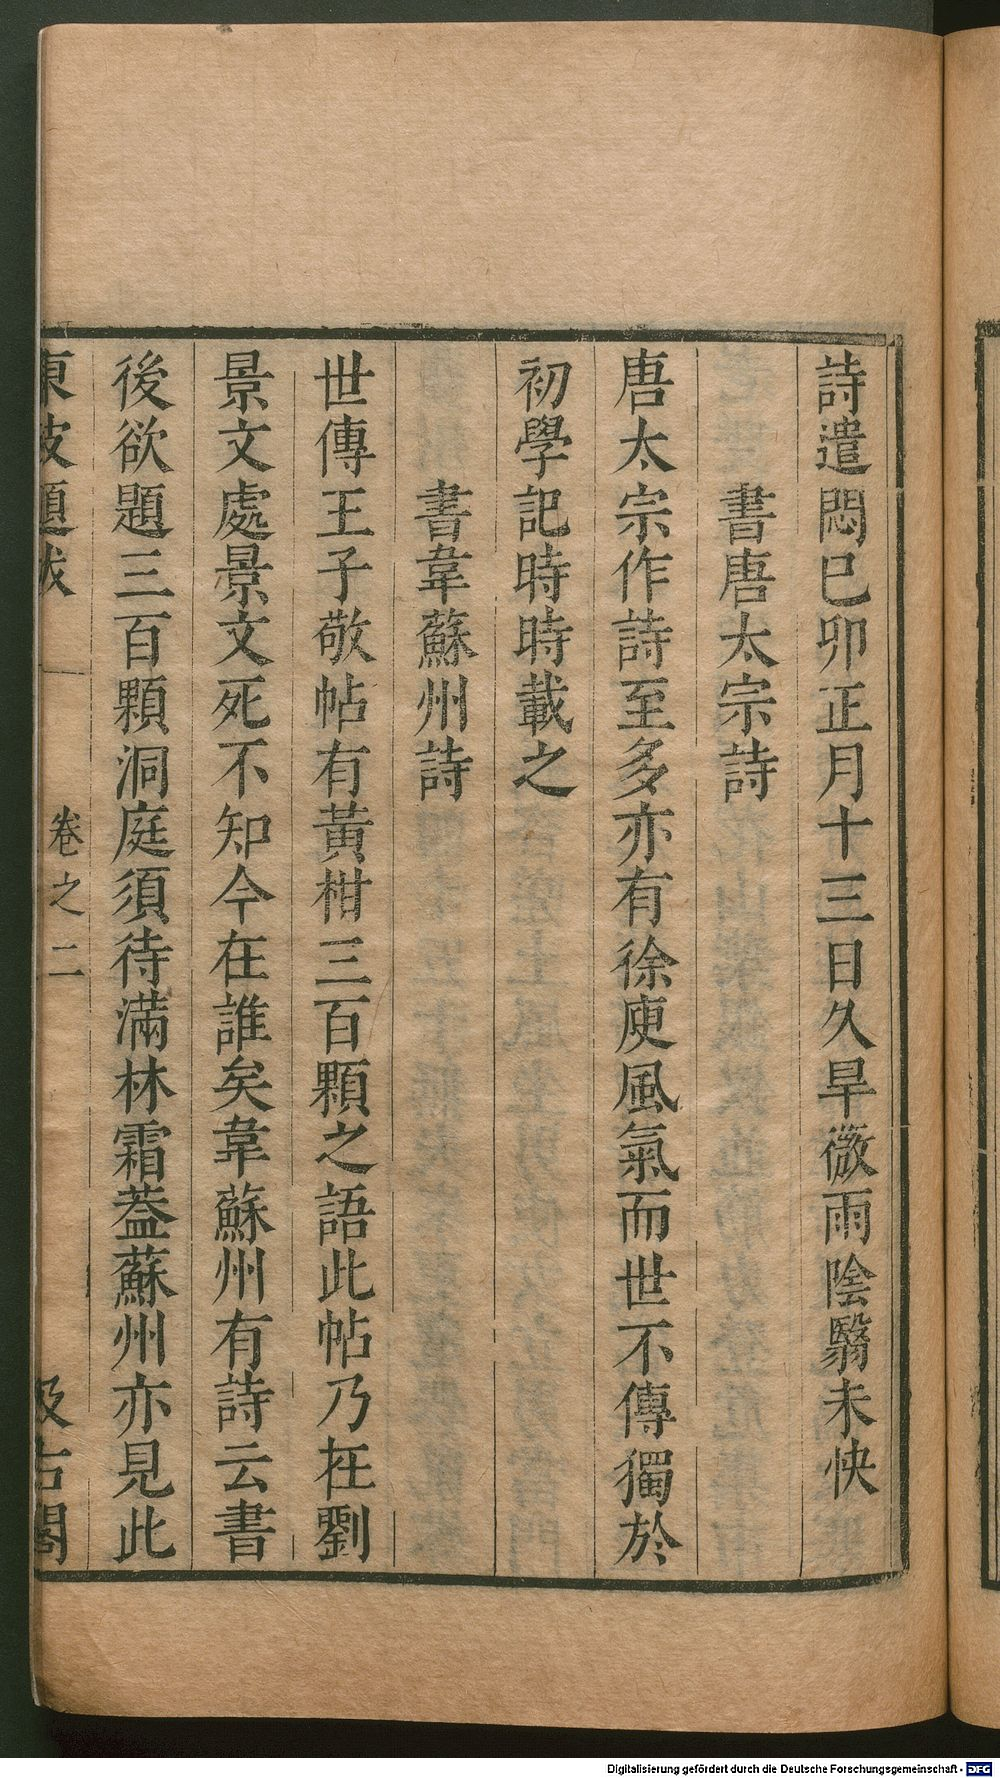 詩遣悶巳卯正月十三日久旱微雨陰翳未快
書唐太宗詩
唐太宗作詩至多亦有徐庾風氣而世不傳獨於
初學記時時載之
書韋蘇州詩
世傳王子敬帖有黃柑三百顆之語此帖乃在劉
景文處景文死不知今在誰矣韋蘇州有詩云書
後欲題三百顆洞庭須待滿林霜蓋蘇州亦見此
東坡題跋
卷之二
汲古閣
Digitalisierung gefördert durch die Deutsche Forschungsgemeinschaft - DFG